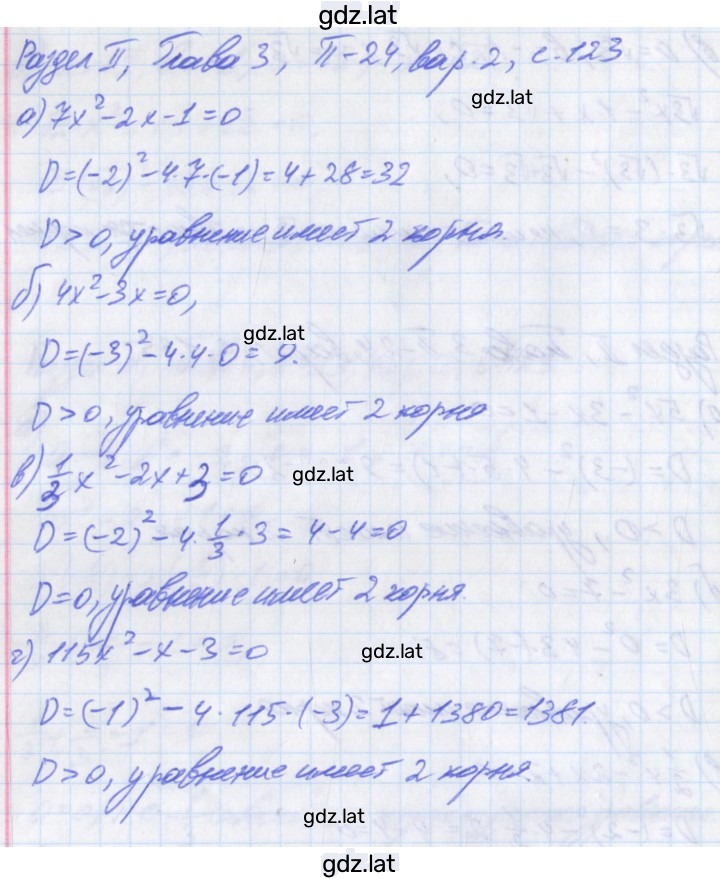 gdz.lat
Раздел II, Глава 3, П-24, вар. 2, с. 123
gdz.lat
а) 7x²-2x-1=0
D=(-2)²-4·7·(-1)=4+28=32
D>0, уравнение имеет 2 корня.
б) 4x²-3x=0,
gdz.lat
D=(-3)²-4·4·0=9.
D>0, уравнение имеет 2 корня
в) 1/3 x²-2x+3=0
gdz.lat
D=(-2)²-4·1/3·3=4-4=0
D=0, уравнение имеет 2 корня.
г) 115x²-x-3=0
gdz.lat
D=(-1)²-4·115·(-3)=1+1380=1381
D>0, уравнение имеет 2 корня.
gdz.lat
gdz.lat